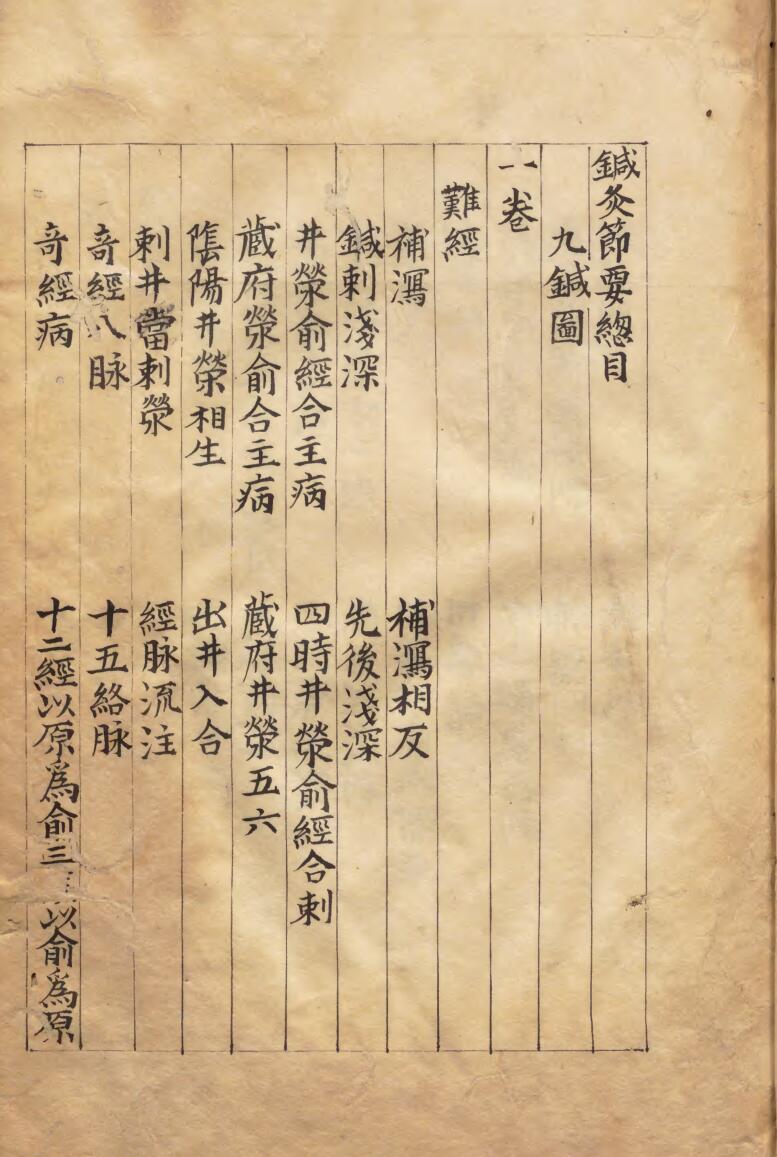 鍼灸節要總目
九鍼圖
一卷
難經
補瀉 補瀉相反
鍼刺淺深 先後淺深
井滎俞經合主病 四時井滎俞經合刺
蔵府滎俞合主病 蔵府井滎五六
陰陽井榮相生 出井入合
刺井當刺滎 經脉流注
竒經八脉 十五絡脉
竒經病 十二經以原爲俞三 以俞爲原